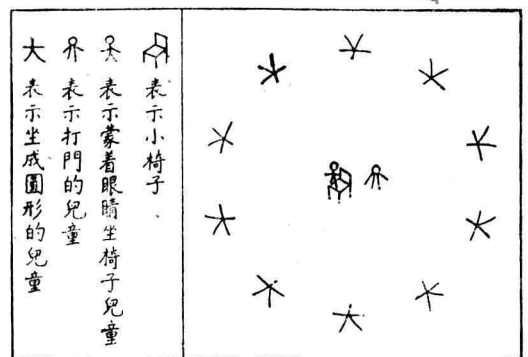 表示小椅子
表示蒙着眼睛坐椅子兒童
表示打門的兒童
表示坐成圓形的兒童